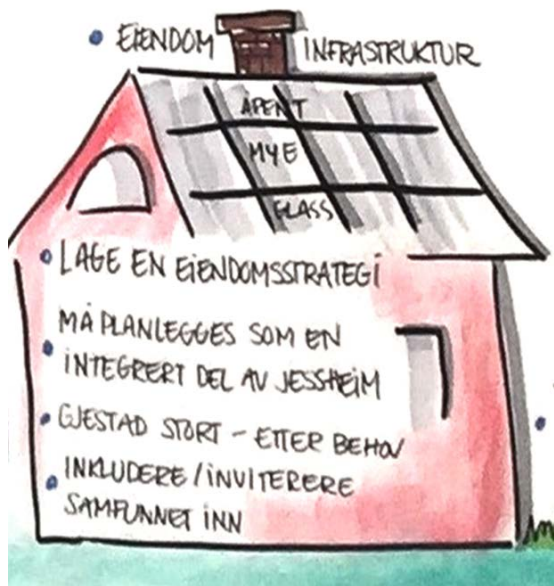 • EIENDOM INFRASTRUKTUR
ÅPENT
MYE
GLASS
• LAGE EN EIENDOMSSTRATEGI
MÅ PLANLEGGES SOM EN
• INTEGRERT DEL AV JESSHEIM
• GJESTAD STORT - ETTER BEHOV
• INKLUDERE / INVITERERE
SAMFUNNET INN